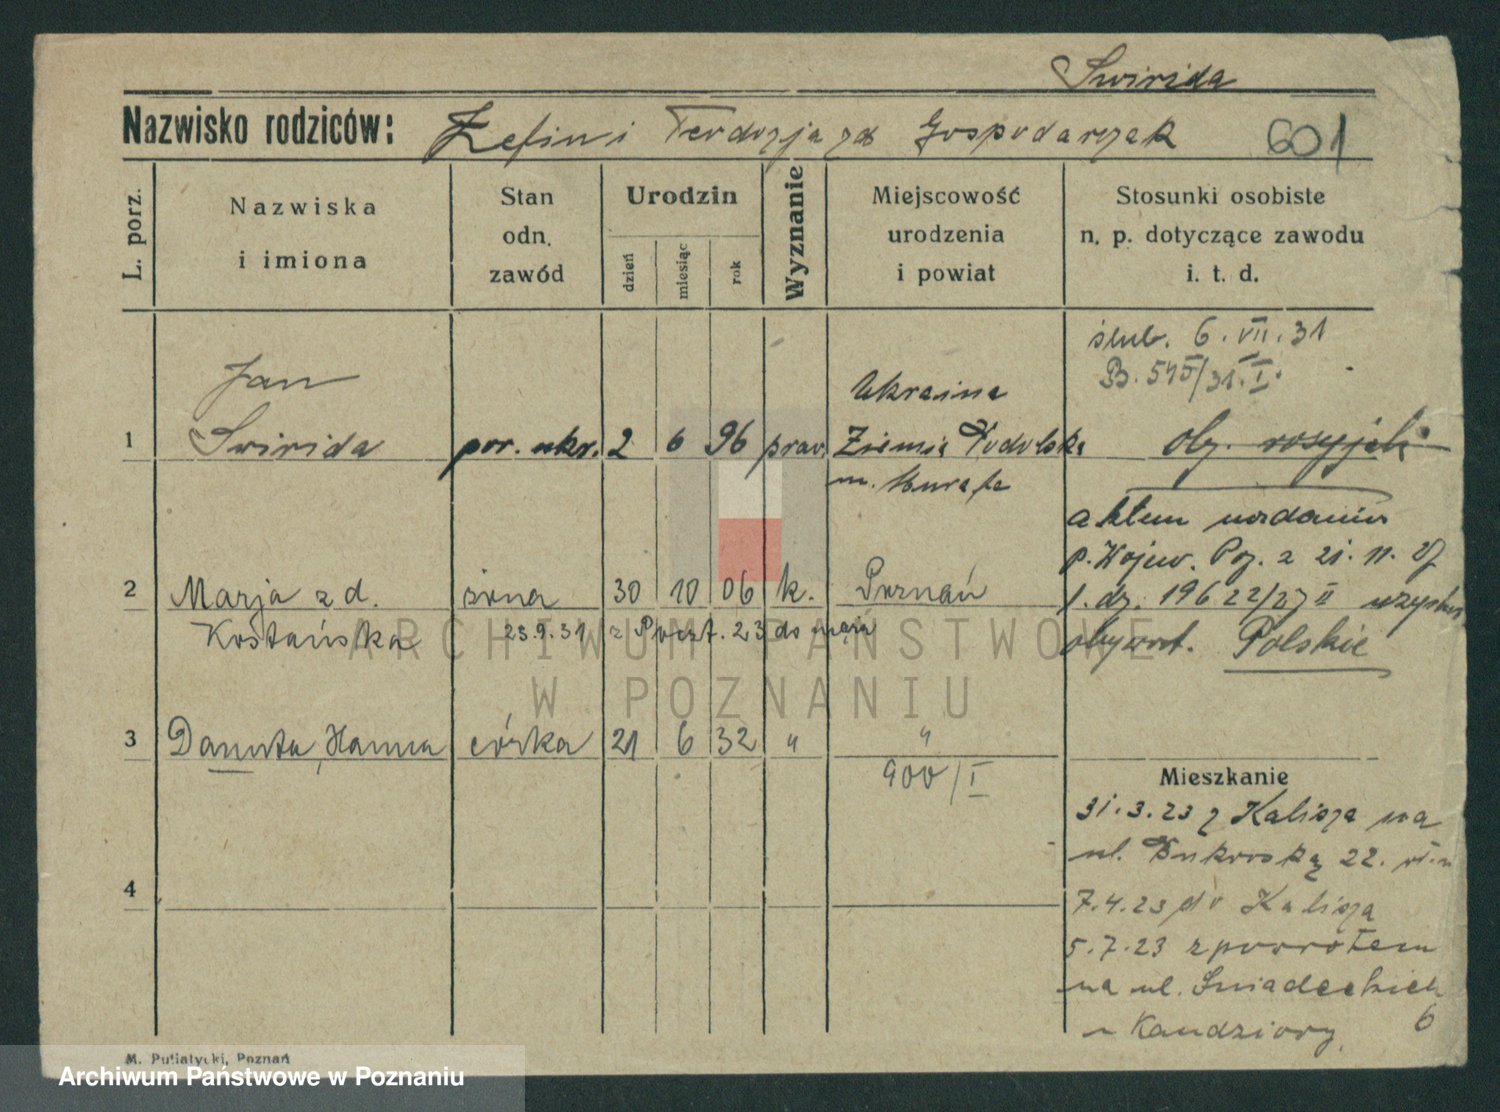 Swirida
Nazwisko rodziców: Zefin i Teodozja zd Gospodarczak 601
L. porz.
Nazwiska
i imiona
Stan
odn.
zawód
Urodzin
dzień
miesiąc
rok
Wyznanie
Miejscowość
urodzenia
i powiat
Stosunki osobiste
n. p. dotyczące zawodu
i. t. d.
ślub. 6. VII. 31
B. 545/31. I.
Jan Ukraina
1 Swirida por. ukr. 2 6 96 praw. Ziemia Podolska ob. rosyjsk.
m. Murafa
aktem nadania
p. Wojew. Poz. z 21. 11. 27
2 Marja z d. żona 30 10 06 k. Poznań l. dz. 19622/27 II uzyskał
Kostańska 23.9.31 z Poczt. 23 do męża obywat. Polskie
ARCHIWUM PAŃSTWOWE
W POZNANIU
3 Danuta, Hanna córka 21 6 32 " "
900/I
Mieszkanie
31.3.23 z Kalisza na
ul. Bukowską 22.
4
7.4.23 do Kalisza
5.7.23 z powrotem
na ul. Śniadeckich
u Kandziory 6
M. Putiatycki, Poznań
Archiwum Państwowe w Poznaniu